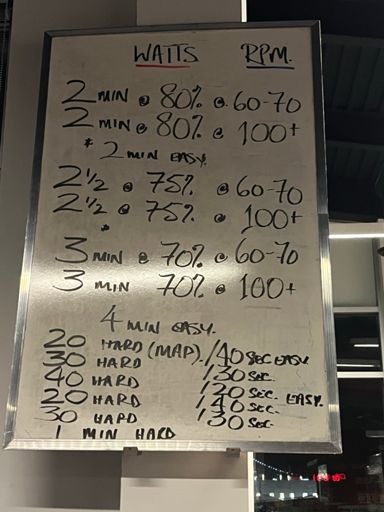 WATTS RPM.
2 MIN @ 80% @ 60-70
2 MIN @ 80% @ 100+
* 2 MIN EASY.
2 1/2 @ 75% @ 60-70
2 1/2 @ 75% @ 100+
*
3 MIN @ 70% @ 60-70
3 MIN 70% @ 100+
4 MIN EASY.
20 HARD (MAP). / 40 SEC EASY
30 HARD / 30 SEC.
40 HARD / 20 SEC. EASY.
20 HARD / 40 SEC.
30 HARD / 30 SEC.
1 MIN HARD